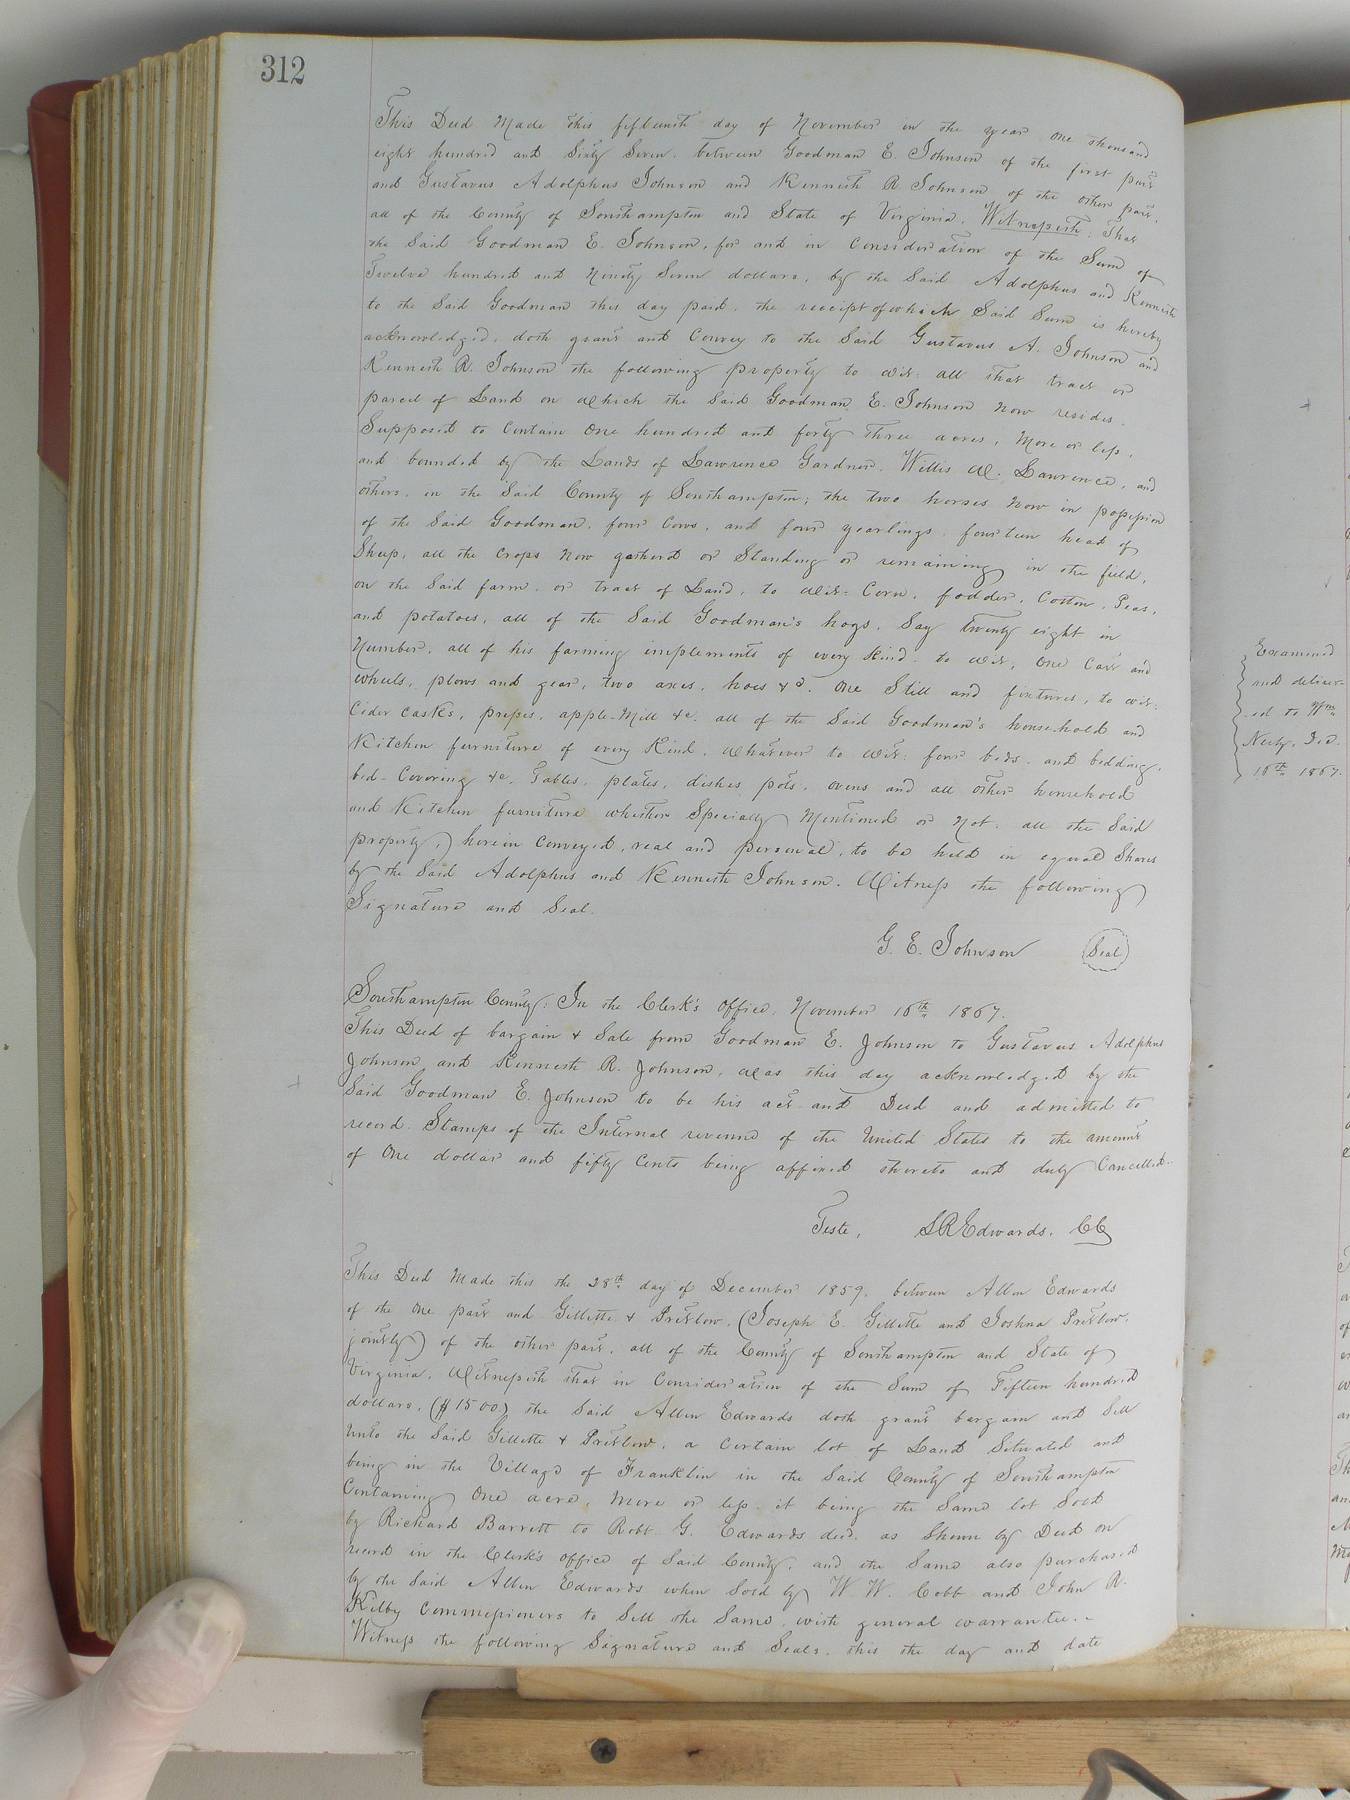 312
This Deed Made this fifteenth day of November in the year one thousand
eight hundred and Sixty Seven. between Goodman E. Johnson of the first part
and Gustavus Adolphus Johnson and Kenneth R. Johnson of the other part.
all of the County of Southampton and State of Virginia. Witnesseth: That
the Said Goodman E. Johnson, for and in Consideration of the Sum of
Twelve hundred and Ninety Seven dollars, by the Said Adolphus and Kenneth
to the Said Goodman this day paid. the receipt of which Said Sum is hereby
acknowledged, doth grant and Convey to the Said Gustavus A. Johnson and
Kenneth R. Johnson the following property to wit: all that tract or
parcel of Land on which the Said Goodman E. Johnson now resides.
Supposed to Contain One hundred and forty Three acres, More or less,
and bounded by the Lands of Lawrence Gardner. Willis W. Lawrence, and
others. in the Said County of Southampton; the two horses Now in possession
of the Said Goodman. four Cows, and four yearlings, fourteen head of
Sheep, all the Crops Now gatherd or Standing or remaining in the field,
on the Said farm. or tract of Land, to wit: Corn, fodder, Cotton, Peas,
and potatoes, all of the Said Goodman's hogs. Say twenty eight in
Number. all of his farming implements of every Kind. to wit, One Cart and
wheels, plows and gear, two axes, hoes &c. One Still and fixtures, to wit:
Cider Casks, presses, apple-Mill &c. all of the Said Goodman's household and
Kitchen furniture of every Kind. Whatever to wit: four beds. and bedding,
bed-Covering &c. Tables, plates, dishes pots, ovens and all other household
and Kitchen furniture whether Specially Mentioned or Not. all the Said
property,) herein Conveyed, real and personal, to be held in equal Shares
by the Said Adolphus and Kenneth Johnson. Witness the following
Signature and Seal.
G. E. Johnson Seal
Southampton County: In the Clerk's Office, November 16th 1867.
This Deed of bargain & Sale from Goodman E. Johnson to Gustavus Adolphus
Johnson and Kenneth R. Johnson, was this day acknowledged by the
Said Goodman E. Johnson to be his act and Deed and admitted to
record. Stamps of the Internal revenue of the United States to the amount
of One dollar and fifty Cents being affixed thereto and duly Cancelled.
Teste, LREdwards. CC
This Deed Made this the 28th day of December 1859. between Allen Edwards
of the One part and Gillette & Pretlow. (Joseph E. Gillette and Joshua Pretlow.
jointly) of the other part, all of the County of Southampton and State of
Virginia. Witnesseth that in Consideration of the Sum of Fifteen hundred
dollars. ($1500) the Said Allen Edwards doth grant bargain and Sell
Unto the Said Gillette & Pretlow. a Certain lot of Land Situated and
being in the Village of Franklin in the Said County of Southampton
Containing One acre, More or less. it being the Same lot Sold
by Richard Barrett to Robt. G. Edwards decd. as Shewn by Deed on
record in the Clerk's Office of Said County. and the Same also purchased
by the Said Allen Edwards when Sold by W. W. Cobb and John R.
Kilby Commessioners to Sell the Same, with general warrantee.
Witness the following Signature and Seals. this the day and date
Examined
and deliver-
ed to Wm
16th 1867.